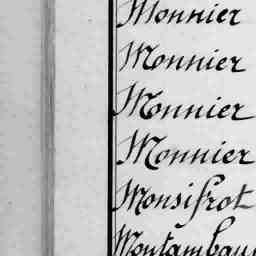 Monnier
Monnier
Monnier
Monnier
Monsifrot